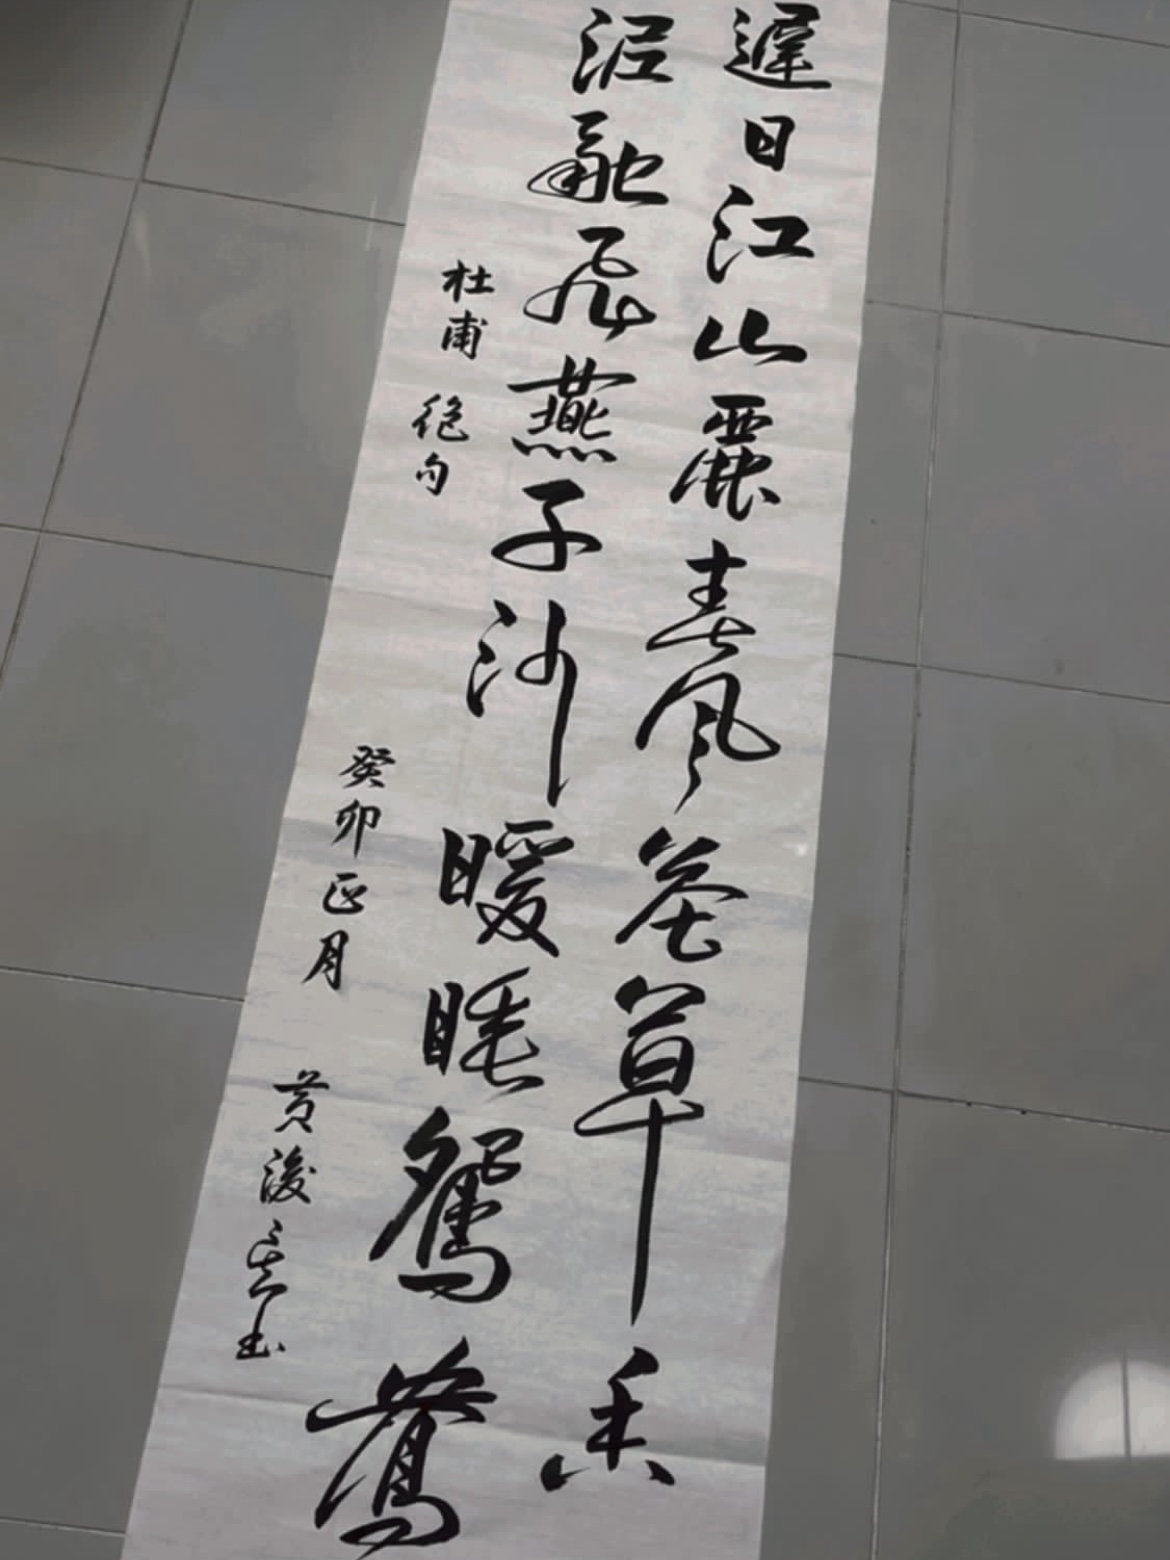 遲日江山麗春風花草香
泥融飛燕子沙暖睡鴛鴦
杜甫 絕句 癸卯正月 黃浚書